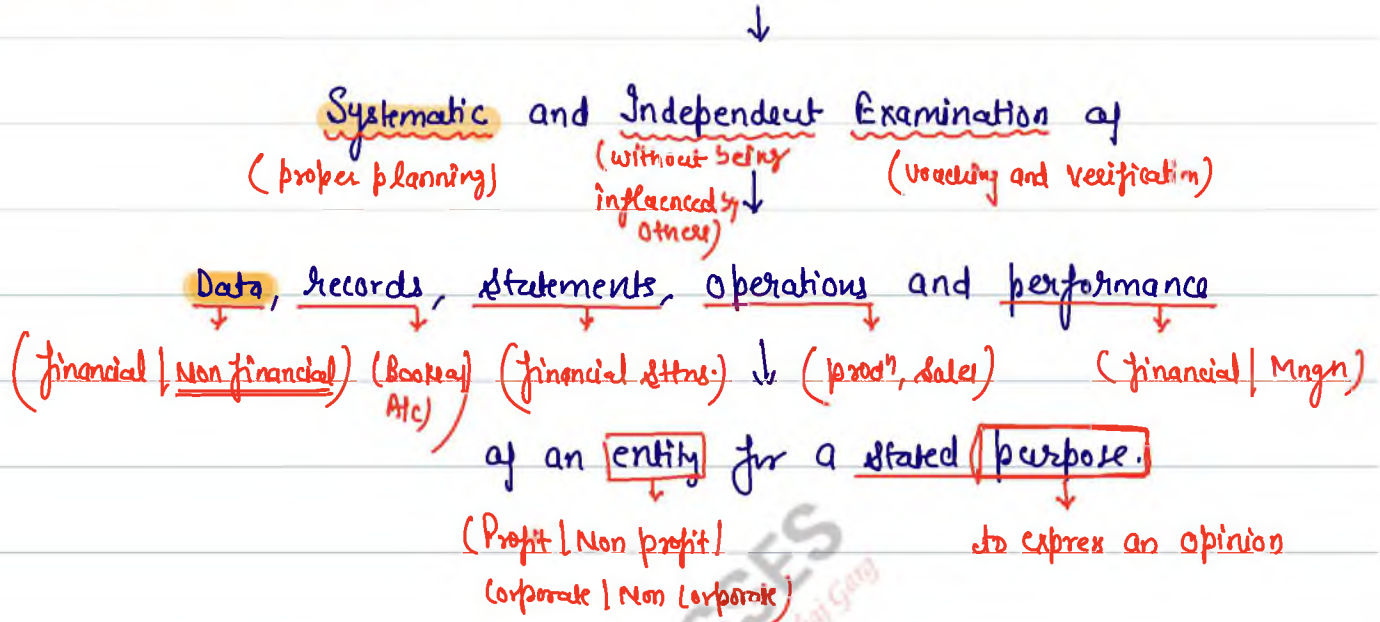 Systematic and Independent Examination of
(proper planning) (without being influenced by others) (vouching and verification)
Data, records, statements, operations and performance
(financial | Non financial) (Books of A/c) (financial sttns.) (prodⁿ, sales) (financial | Mngn)
of an entity for a stated purpose.
(Profit | Non profit | to express an opinion
Corporate | Non Corporate)